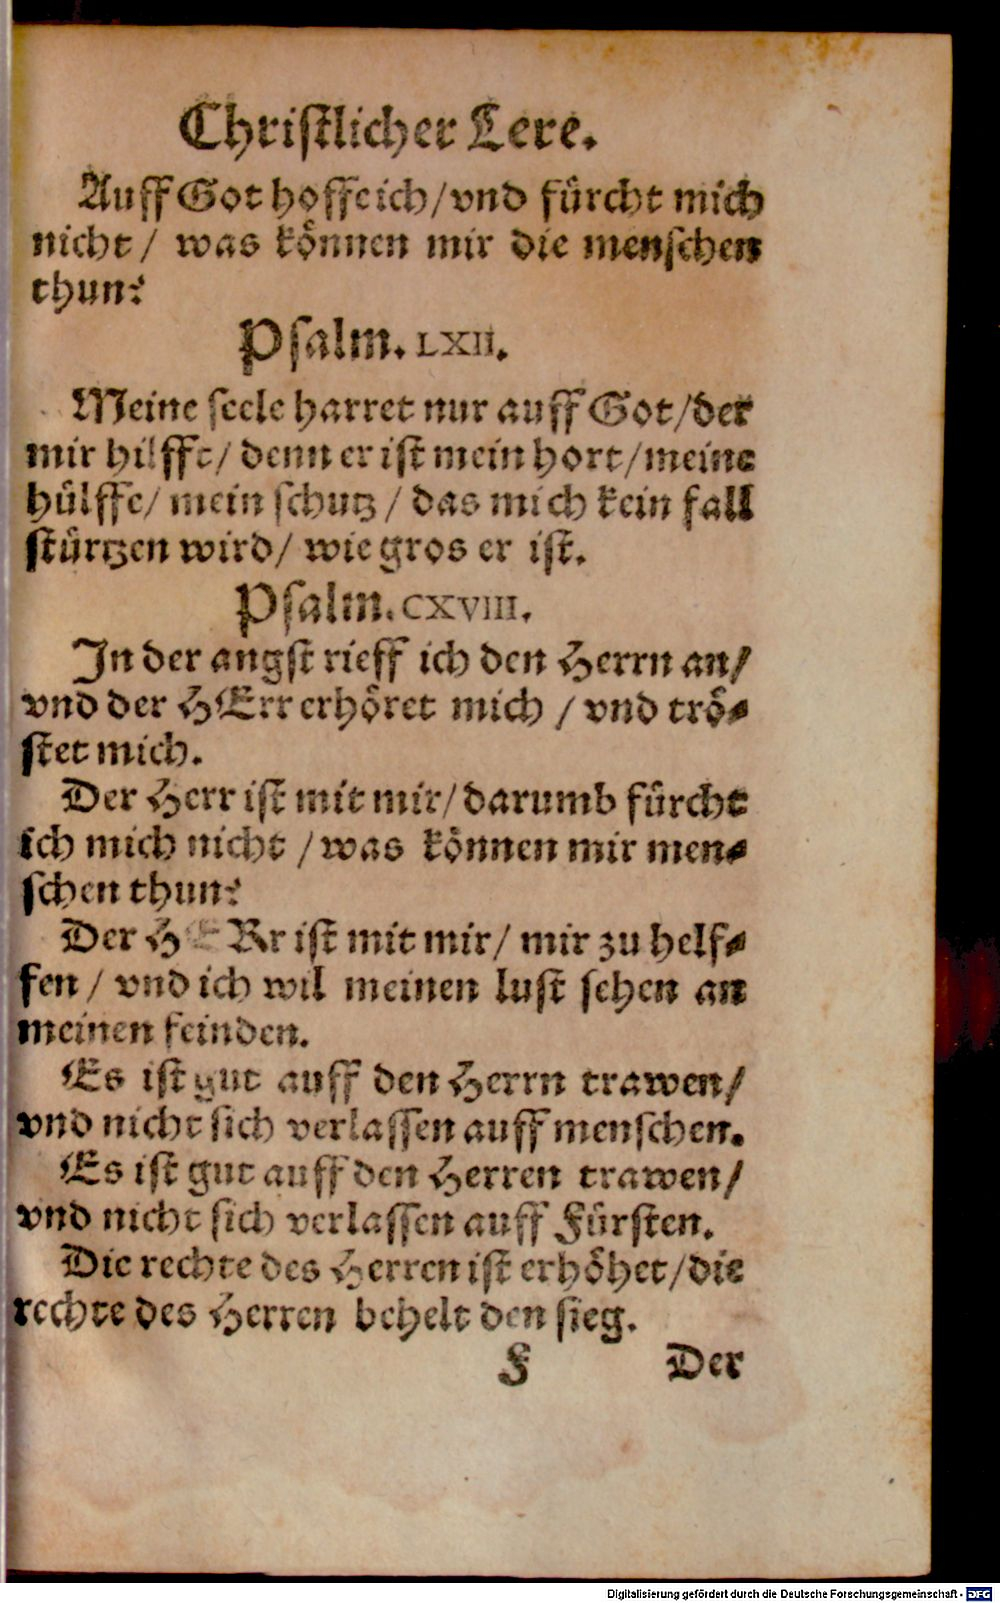 Christlicher Lere.
Auff Got hoffe ich/ vnd fürcht mich
nicht/ was können mir die menschen
thun?
Psalm. LXII.
Meine seele harret nur auff Got/ der
mir hilfft/ denn er ist mein hort/ meine
hülffe/ mein schutz/ das mich kein fall
stürtzen wird/ wie gros er ist.
Psalm. CXVIII.
In der angst rieff ich den Herrn an/
vnd der HErr erhöret mich/ vnd trö-
stet mich.
Der Herr ist mit mir/ darumb fürcht
ich mich nicht/ was können mir men-
schen thun?
Der HERr ist mit mir/ mir zu helf-
fen/ vnd ich wil meinen lust sehen an
meinen feinden.
Es ist gut auff den Herrn trawen/
vnd nicht sich verlassen auff menschen.
Es ist gut auff den Herren trawen/
vnd nicht sich verlassen auff Fürsten.
Die rechte des Herren ist erhöhet/ die
rechte des Herren behelt den sieg.
F Der
Digitalisierung gefördert durch die Deutsche Forschungsgemeinschaft - DFG